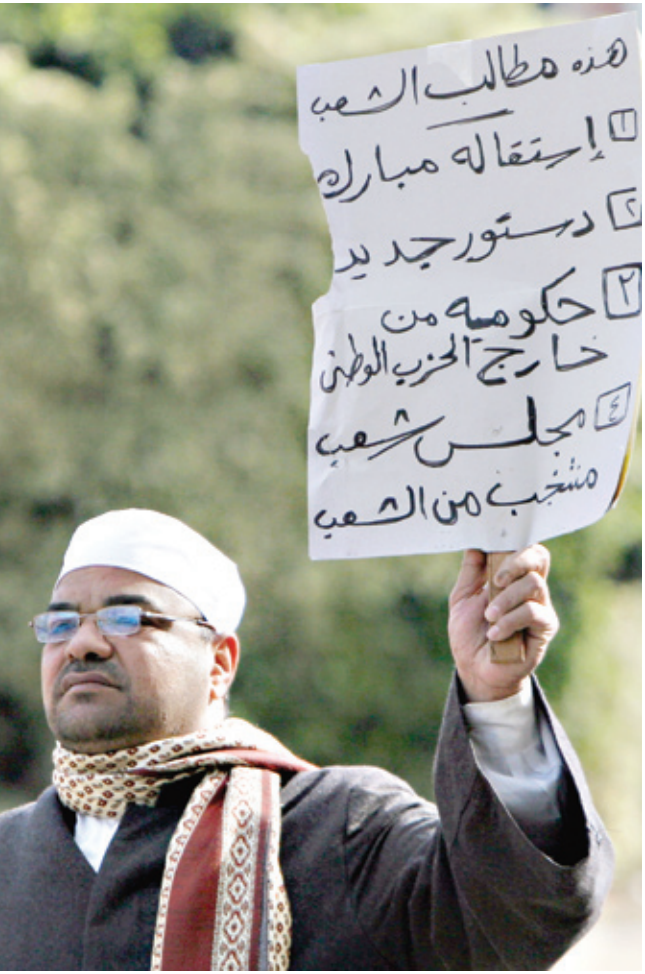 هذه مطالب الشعب
١ إستقالة مبارك
٢ دستور جديد
٣ حكومية من
خارج الحزب الوطنى
٤ مجلس شعب
منتخب من الشعب